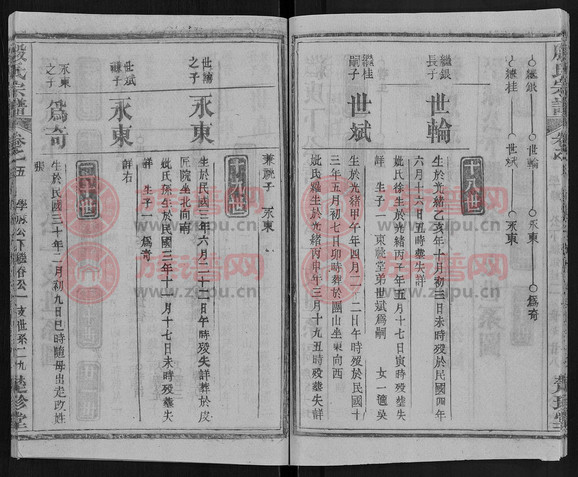 繼銀 世輪 永東 為奇
繼桂 世斌 永東
十八世
繼銀長子 世輪
生於光緒乙亥年十月初三日未時歿於民國四年
六月十六日五時葬失詳
妣氏徐生於光緒丙子年五月十七日寅時歿葬失
詳 生子一 永東
繼桂嗣子 世斌
生於光緒甲午年四月二十二日午時歿於民國十
三年五月初七日卯時葬於團山坐東向西
妣氏羅生於光緒丙申年三月十九五時歿葬失詳
兼祧子 永東
十九世
世輪之子 永東
生於民國三年六月二十二日午時歿失詳葬於皮
匠院坐北向南
妣氏孫生於民國三年十一月十七日未時歿葬失
詳 生子一 為奇
世斌祧子 永東
詳右
二十世
永東之子 為奇
生於民國三十年二月初九日巳時隨母出走改姓
張
殷氏宗譜
卷之五
族谱网
www.zupu.cn
族谱网
www.zupu.cn